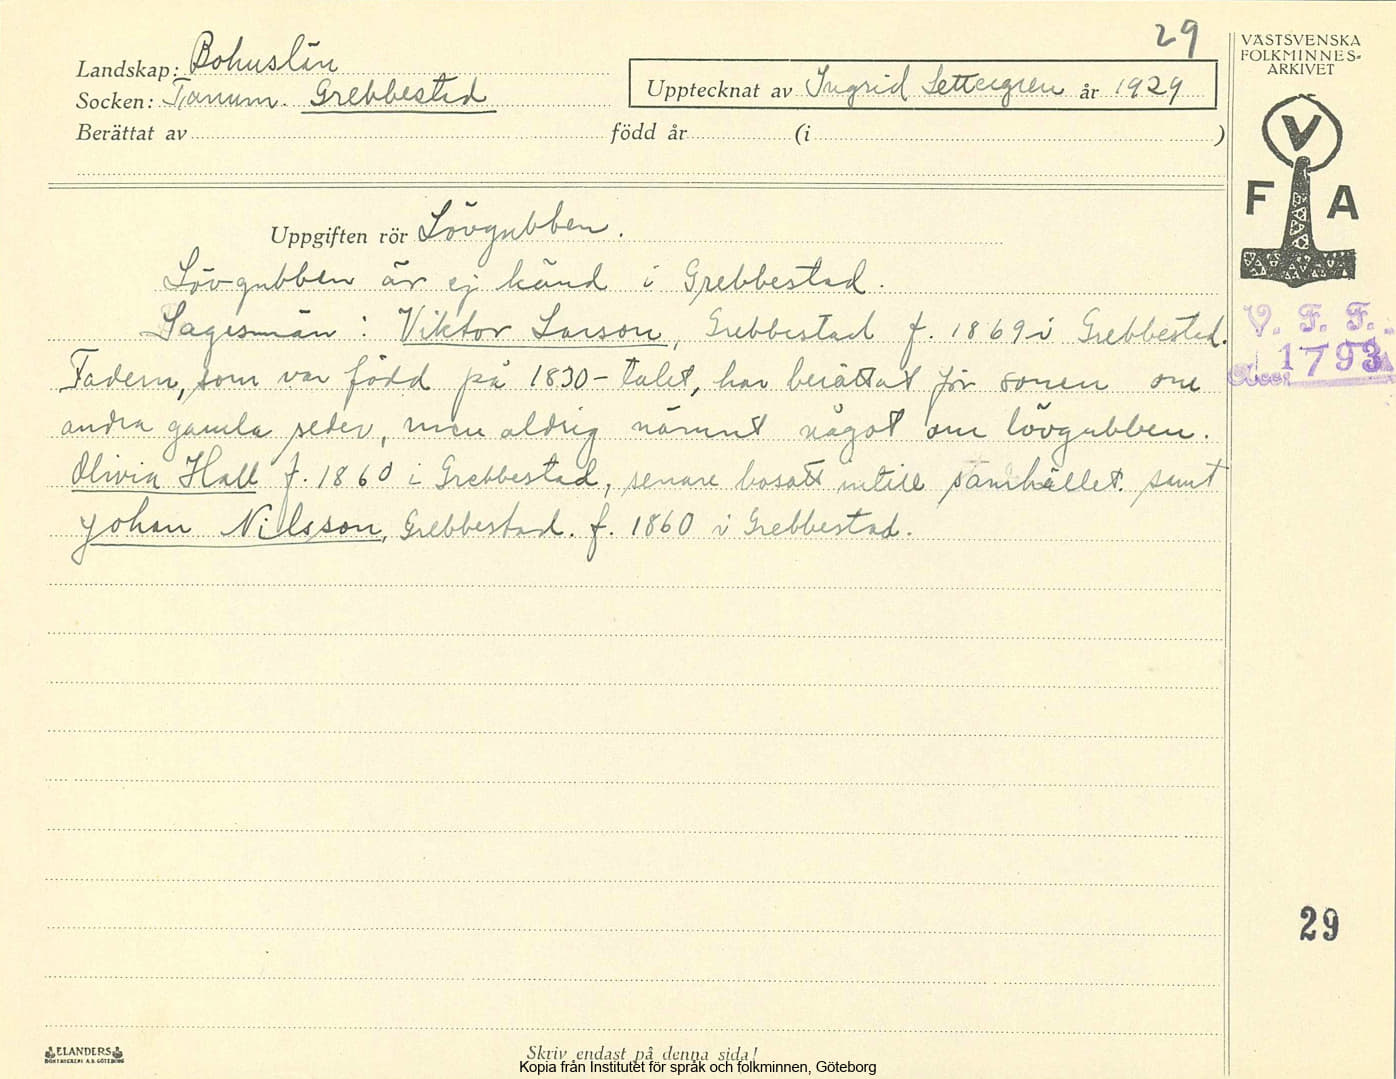 29
VÄSTSVENSKA
FOLKMINNES-
ARKIVET
Landskap: Bohuslän
Socken: Tanum. Grebbestad
Upptecknat av Ingrid Settergren år 1929
Berättat av född år (i )
V
F A
Uppgiften rör Lövgubben.
Lövgubben är ej känd i Grebbestad.
Sagesmän: Viktor Larson, Grebbestad f. 1869 i Grebbestad.
Fadern, som var född på 1830-talet, har berättat för sonen om
andra gamla seder, men aldrig nämnt något om lövgubben.
Olivia Hall f. 1860 i Grebbestad, senare bosatt intill samhället. samt
Johan Nilsson, Grebbestad. f. 1860 i Grebbestad.
V. F. F.
1793
29
ELANDERS
BOKTRYCKERI A.B. GÖTEBORG
Skriv endast på denna sida!
Kopia från Institutet för språk och folkminnen, Göteborg